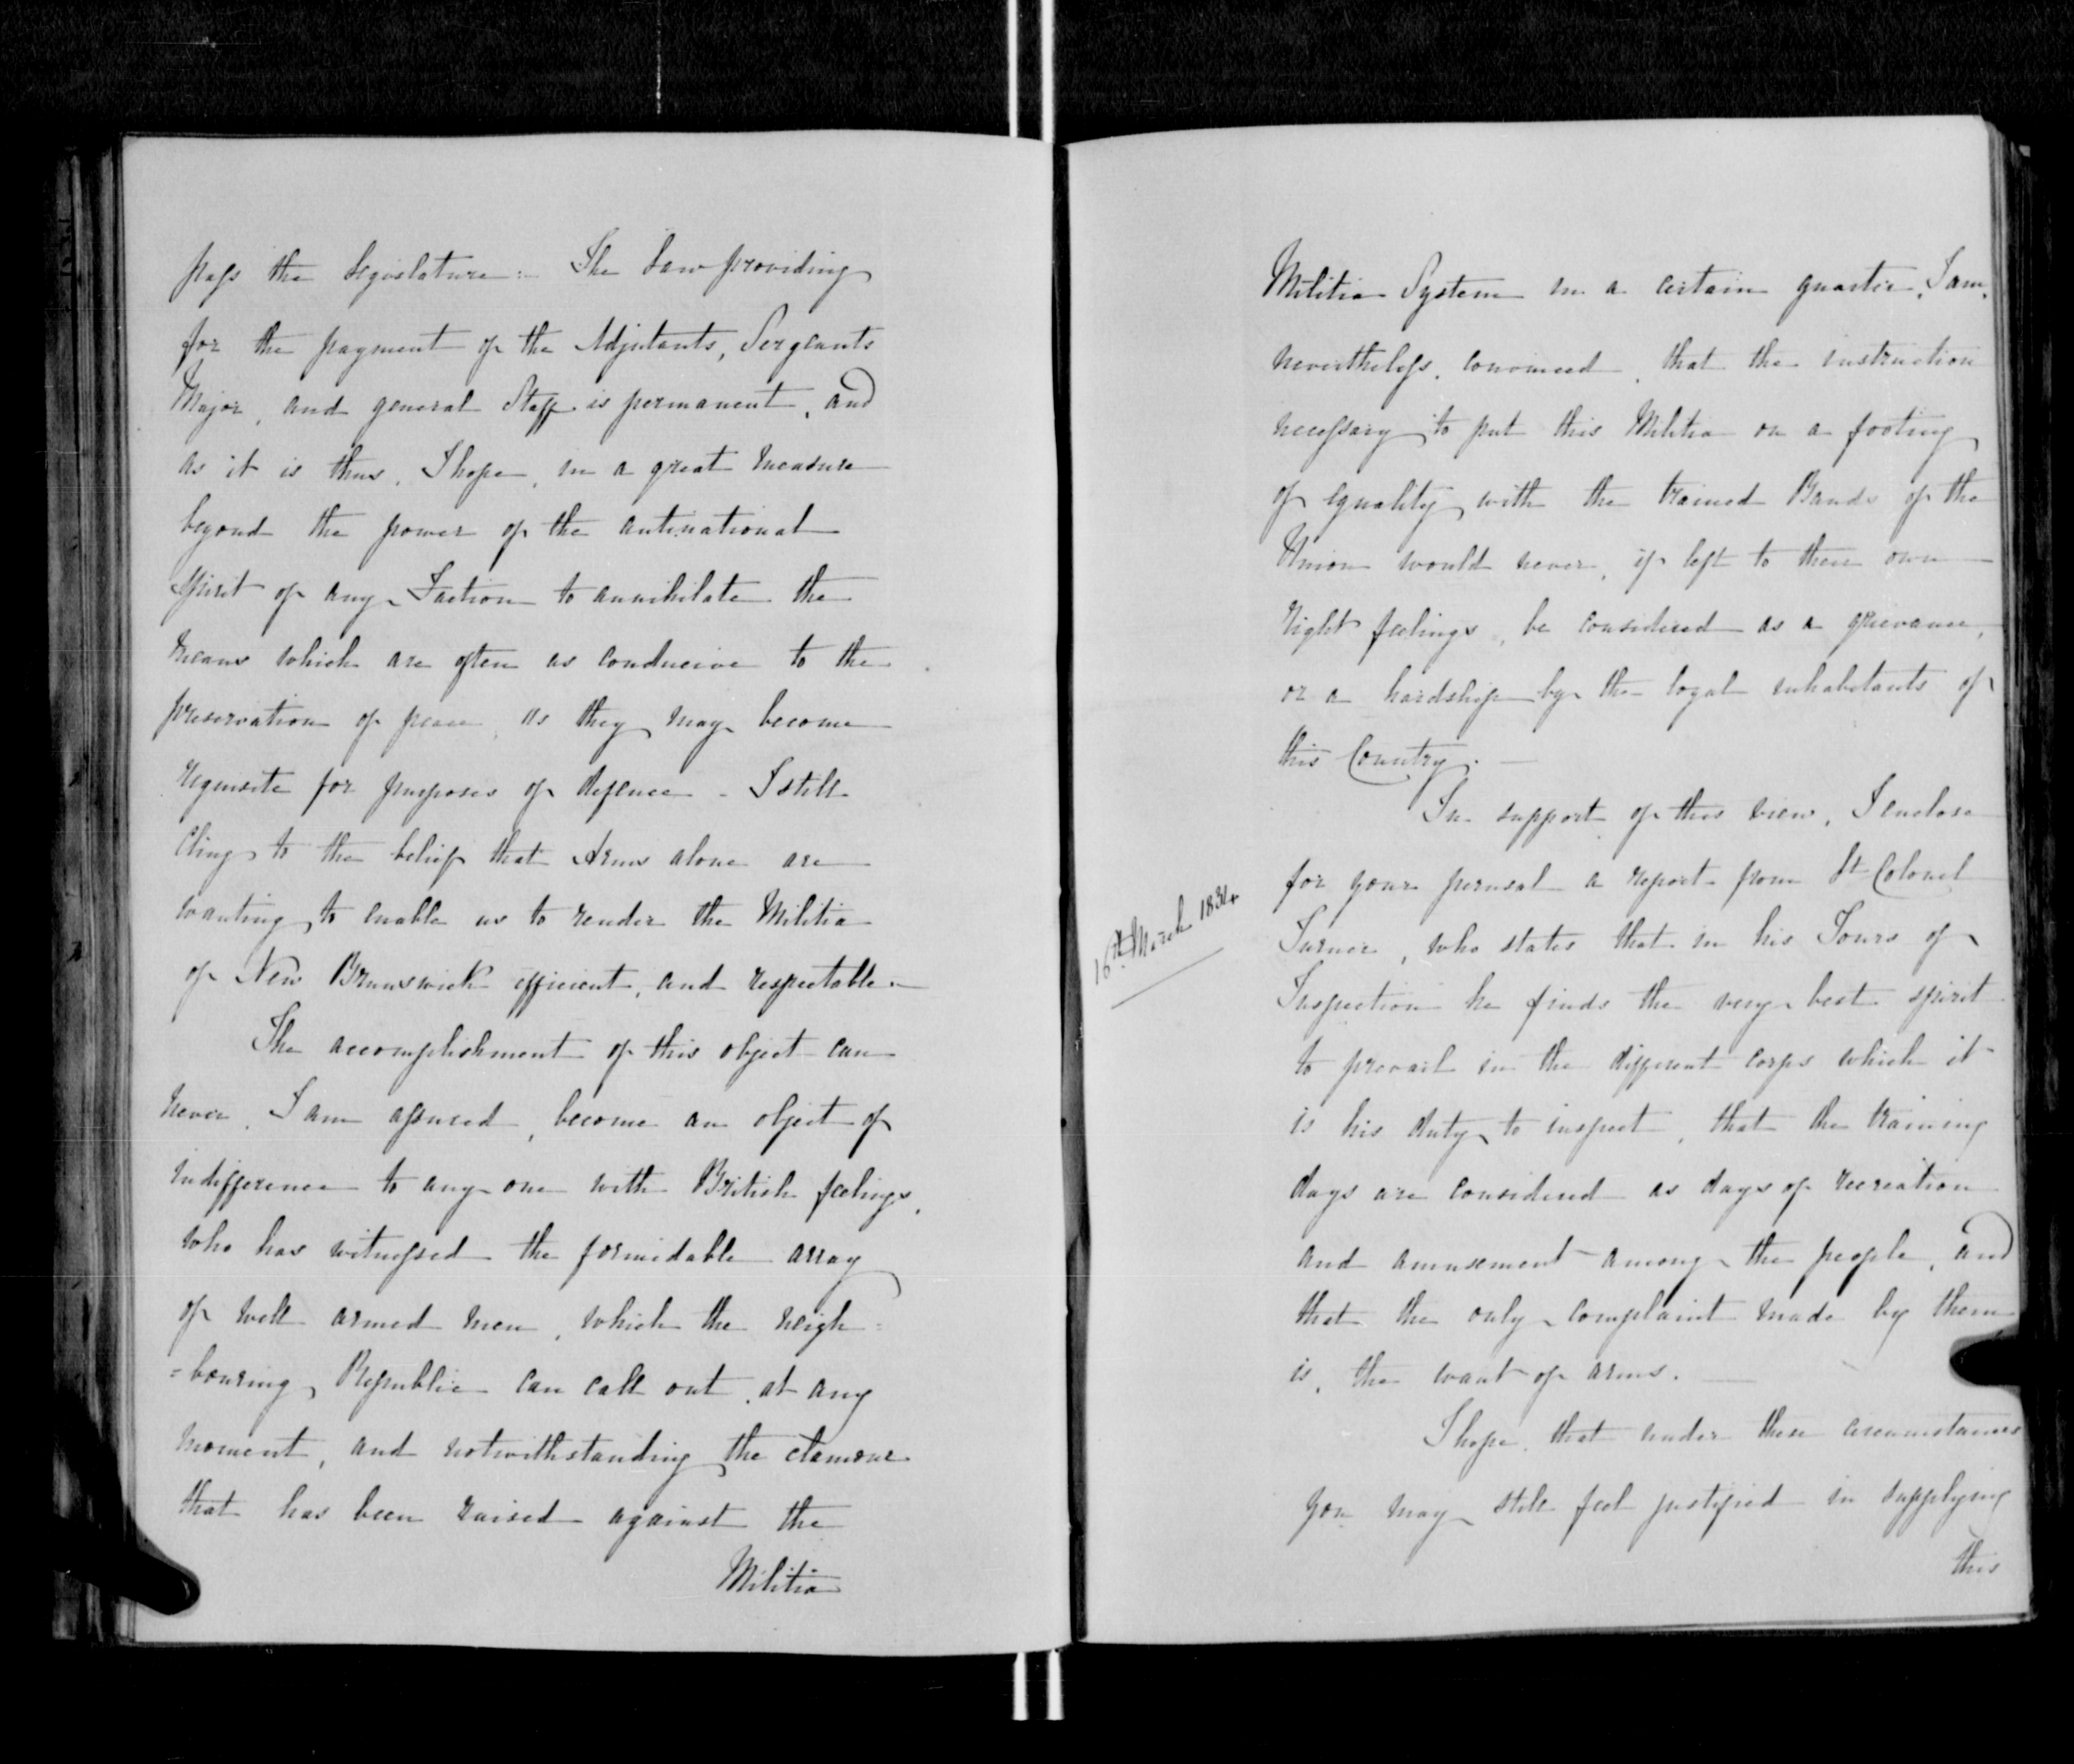 pass the Legislature:- The Law providing
for the payment of the Adjutants, Sergeants
Major, and general Staff is permanent, and
as it is thus, I hope, in a great measure
beyond the power of the antinational
spirit of any Faction to annihilate the
means which are often as conducive to the
preservation of peace, as they may become
requisite for purposes of defence - I still
cling to the belief that Arms alone are
wanting to enable us to render the Militia
of New Brunswick efficient, and respectable.-
The accomplishment of this object can
never, I am assured, become an object of
indifference to any one with British feelings,
who has witnessed the formidable array
of well armed men, which the neigh=
=bouring Republic can call out, at any
moment, and notwithstanding the clamour
that has been raised against the
Militia
Militia System in a certain quarter, I am,
nevertheless, convinced, that the instruction
necessary to put this Militia on a footing
of equality with the trained Bands of the
Union would never, if left to their own
right feelings, be considered as a grievance,
or a hardship by the loyal inhabitants of
this Country. -
In support of this view, I enclose
16th March 1834
for your perusal a report from Lt Colonel
Turner, who states that in his Tours of
Inspection he finds the very best spirit
to prevail in the different corps which it
is his duty to inspect, that the training
days are considered as days of recreation
and amusement among the people, and
that the only complaint made by them
is, the want of arms. -
I hope, that under these circumstances
you may still feel justified in supplying
this